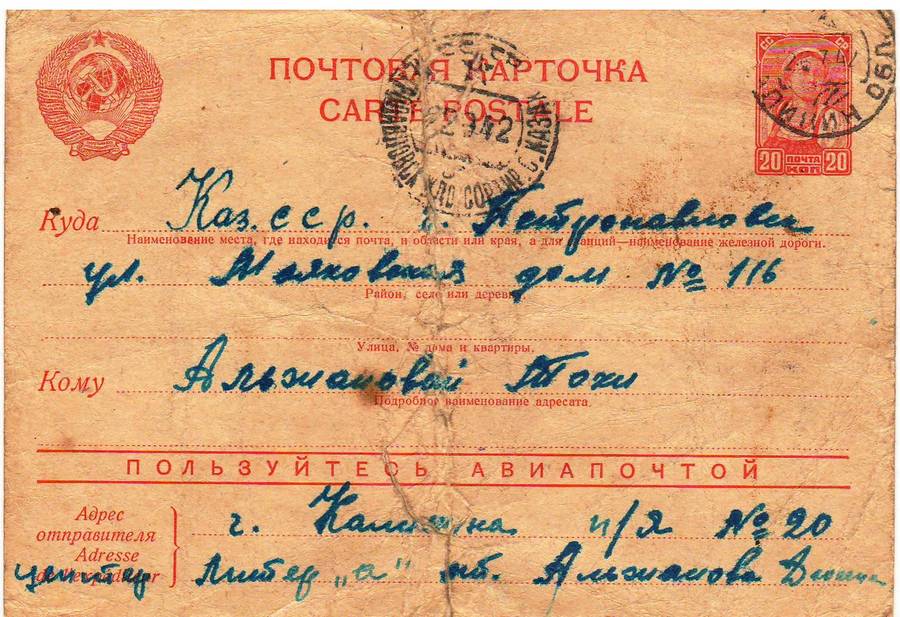 ПОЧТОВАЯ КАРТОЧКА
CARTE POSTALE
СС СР
20 ПОЧТА КОП 20
2 9 42
Куда Каз. сср. г. Петропавловск
Наименование места, где находится почта, и области или края, а для станций—наименование железной дороги.
ул. Маяковская дом № 116
Район, село или деревня
Улица, № дома и квартиры.
Кому Альжановой Тохи
Подробное наименование адресата
ПОЛЬЗУЙТЕСЬ АВИАПОЧТОЙ
Адрес
отправителя г. п/я № 20
Adresse
Литер „а" Альжанова